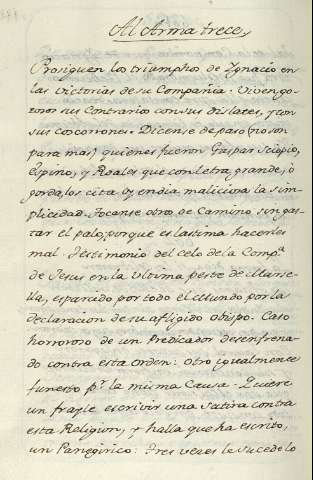 Al Arma trece,
Prosiguen los triumphos de Ygnacio en
las victorias de su Compañia. Viven go-
zosos sus Contrarios con sus dislates, y con
sus coscorrones. Dicense de paso (no son
para mas) quiénes fueron Gaspar Sciopio,
Espino, y Roales que con letra grande, ò
gorda, los cita oy en dia maliciosa la sim-
plicidad. Tocanse otros de Camino sin gas-
tar el palo, porque es lastima hacerles
mal. Testimonio del celo de la Compª.
de Jesus en la ultima peste de Marse-
lla, esparcido por todo el Mundo por la
declaracion de su afligido obispo. Caso
horroroso de un Predicador desenfrena-
do contra esta orden: otro igualmente
funesto pr. la misma Causa. Quiere
un frayle escrivir una satira contra
esta Religion, y halla que ha escrito,
un Panegirico: Tres veces le sucede lo